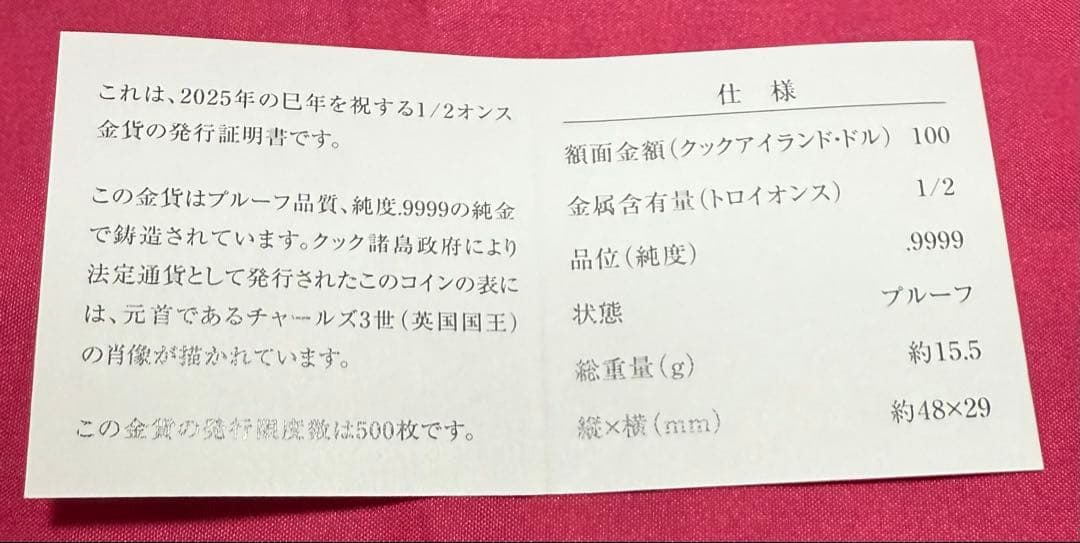 これは、2025年の巳年を祝する1/2オンス
金貨の発行証明書です。
この金貨はプルーフ品質、純度.9999の純金
で鋳造されています。クック諸島政府により
法定通貨として発行されたこのコインの表に
は、元首であるチャールズ3世(英国国王)
の肖像が描かれています。
この金貨の発行限度数は500枚です。
仕 様
額面金額(クックアイランド・ドル) 100
金属含有量(トロイオンス) 1/2
品位(純度) .9999
状態 プルーフ
総重量(g) 約15.5
縦×横(mm) 約48×29